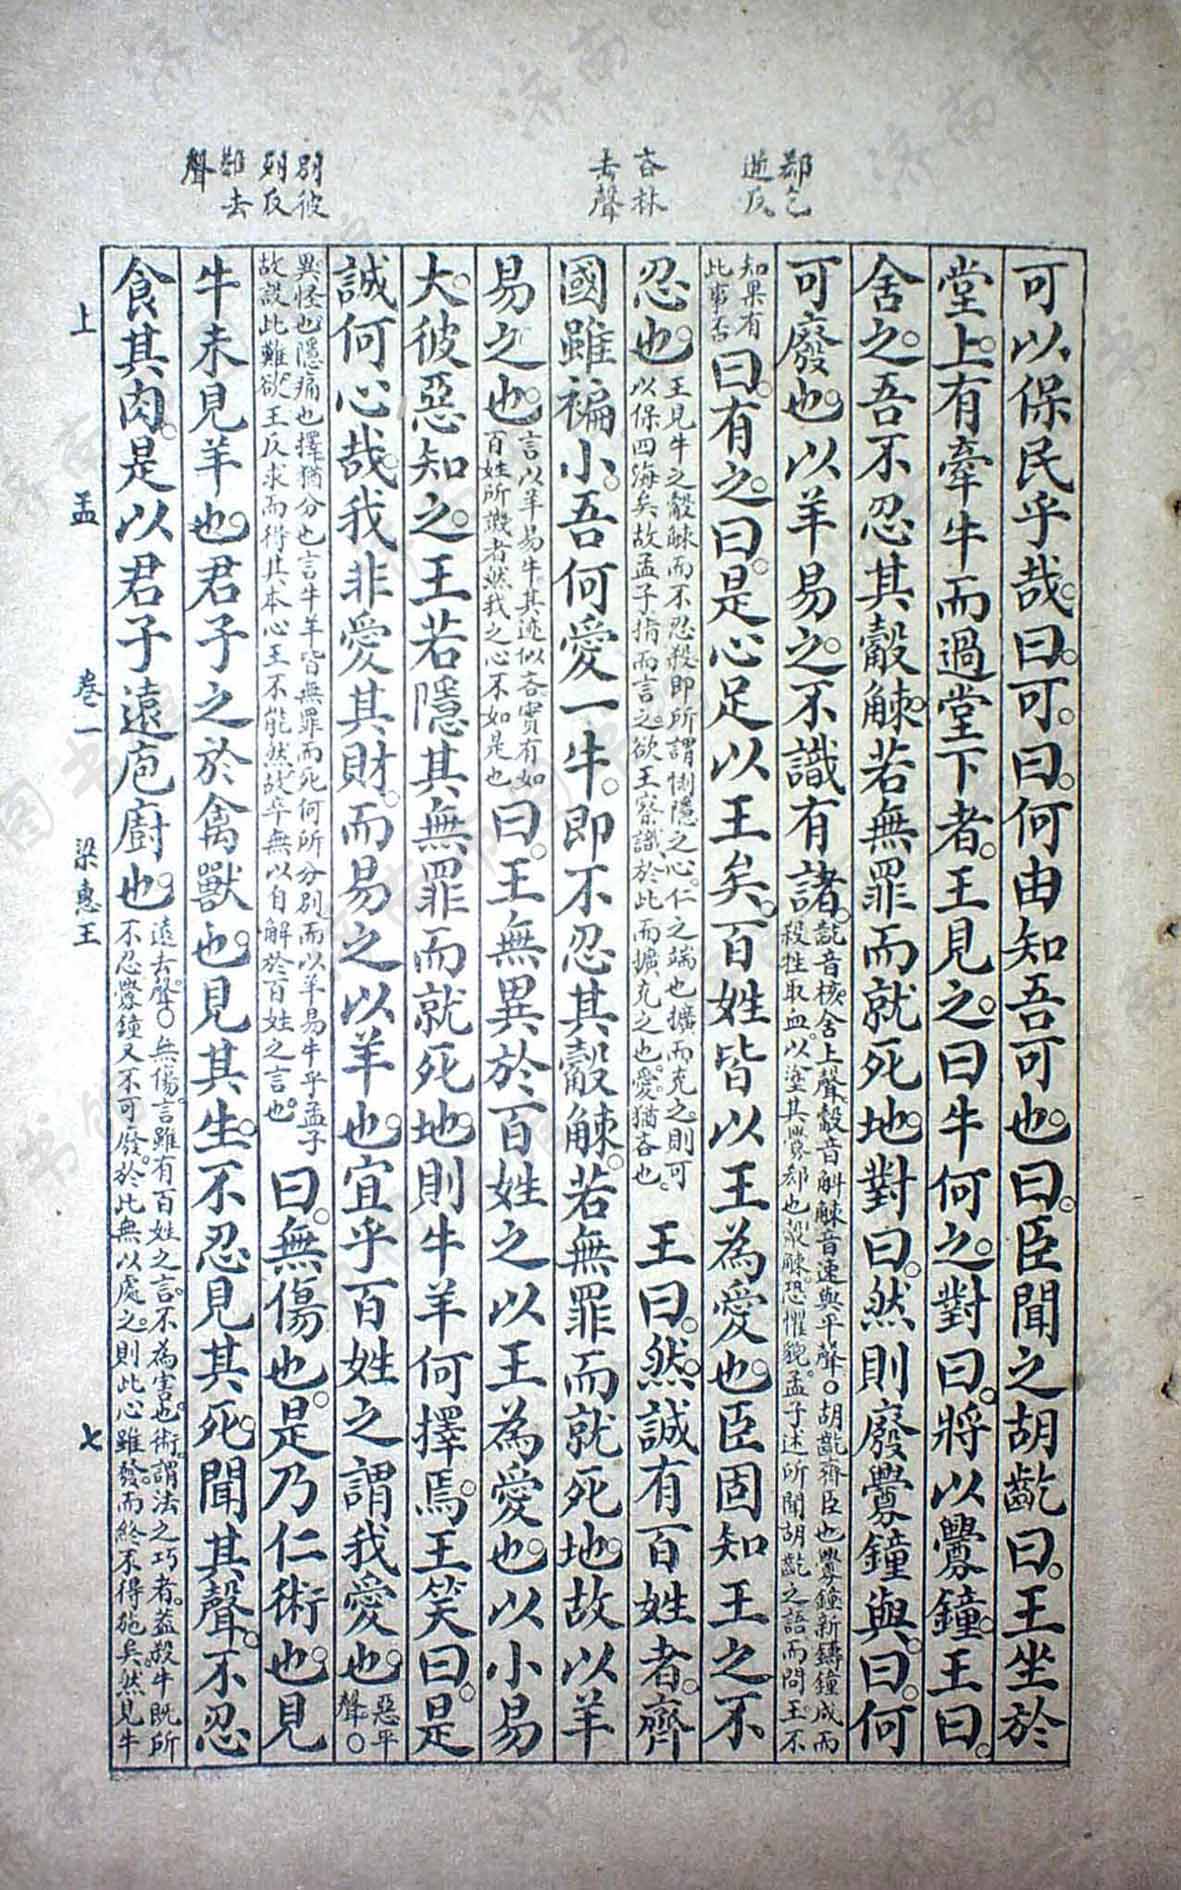 郄乞
逆反
吝林
去聲
别彼
列反
難去
聲
可以保民乎哉。曰。可。曰。何由知吾可也。曰。臣聞之胡齕曰。王坐於
堂上。有牽牛而過堂下者。王見之。曰牛何之。對曰。將以釁鐘。王曰。
舍之。吾不忍其觳觫。若無罪而就死地。對曰。然則廢釁鐘與。曰。何
可廢也。以羊易之。不識有諸。
齕音核。舍上聲。觳音斛觫音速與平聲。○胡齕齊臣也釁鐘新鑄鐘成而
殺牲取血。以塗其釁郄也觳觫。恐懼貌。孟子述所聞胡齕之語。而問王。不
知果有
此事否
曰。有之。曰。是心足以王矣。百姓皆以王為愛也。臣固知王之不
忍也。
王見牛之觳觫而不忍殺即所謂惻隱之心。仁之端也擴而充之。則可
以保四海矣故孟子指而言之。欲王察識於此而擴充之也。愛。猶吝也。
王曰。然。誠有百姓者。齊
國雖褊小。吾何愛一牛。即不忍其觳觫。若無罪而就死地。故以羊
易之也。
言以羊易牛。其迹似吝實有如
百姓所譏者然我之心不如是也
曰。王無異於百姓之以王為愛也。以小易
大。彼惡知之。王若隱其無罪而就死地。則牛羊何擇焉。王笑曰。是
誠何心哉。我非愛其財。而易之以羊也。宜乎百姓之謂我愛也。
惡平
聲。○
異怪也隱痛也擇猶分也言牛羊皆無罪而死何所分别而以羊易牛乎孟子
故設此難欲王反求而得其本心王不能然故卒無以自解於百姓之言也。
曰。無傷也。是乃仁術也。見
牛未見羊也。君子之於禽獸也。見其生。不忍見其死。聞其聲。不忍
食其肉。是以君子遠庖廚也。
遠去聲。○無傷。言雖有百姓之言。不為害也。術。謂法之巧者。蓋殺牛既所
不忍釁鐘又不可廢。於此無以處之。則此心雖發。而終不得施矣然見牛
上孟 卷一 梁惠王 七